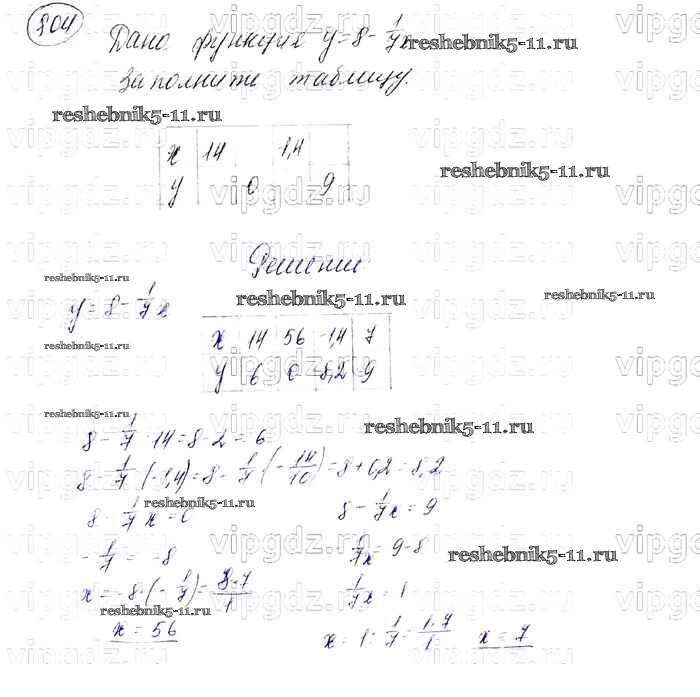 804 Дано функция y = 8 - 1/7 x
reshebnik5-11.ru
Заполните таблицу.
reshebnik5-11.ru
x 14 -1,4
y 0 9
reshebnik5-11.ru
Решение
reshebnik5-11.ru
y = 8 - 1/7 x
reshebnik5-11.ru
reshebnik5-11.ru
x 14 56 -1,4 7
y 6 0 8,2 9
reshebnik5-11.ru
reshebnik5-11.ru
reshebnik5-11.ru
8 - 1/7 · 14 = 8 - 2 = 6
8 - 1/7 · (-1,4) = 8 - 1/7 · (- 14/10) = 8 + 0,2 = 8,2
reshebnik5-11.ru
8 - 1/7 x = 0
8 - 1/7 x = 9
- 1/7 = -8
1/7 x = 9 - 8
reshebnik5-11.ru
x = -8 · (- 1/7) = 8·7/1
1/7 x = 1
reshebnik5-11.ru
x = 56
x = 1 : 1/7 = 1·7/1
x = 7
vipgdz.ru